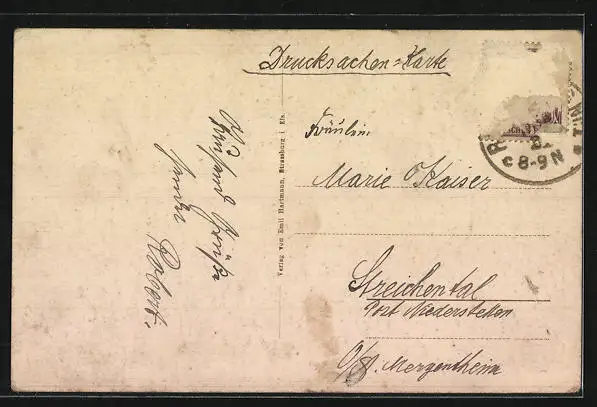 Drucksachen=Karte
Fräulein
Marie Kaiser
Streichental
Post Niederstetten
O/A. Mergentheim
Verlag von Emil Hartmann, Strassburg i. Els.
Grüße
sendet
Robert.
8-9 N